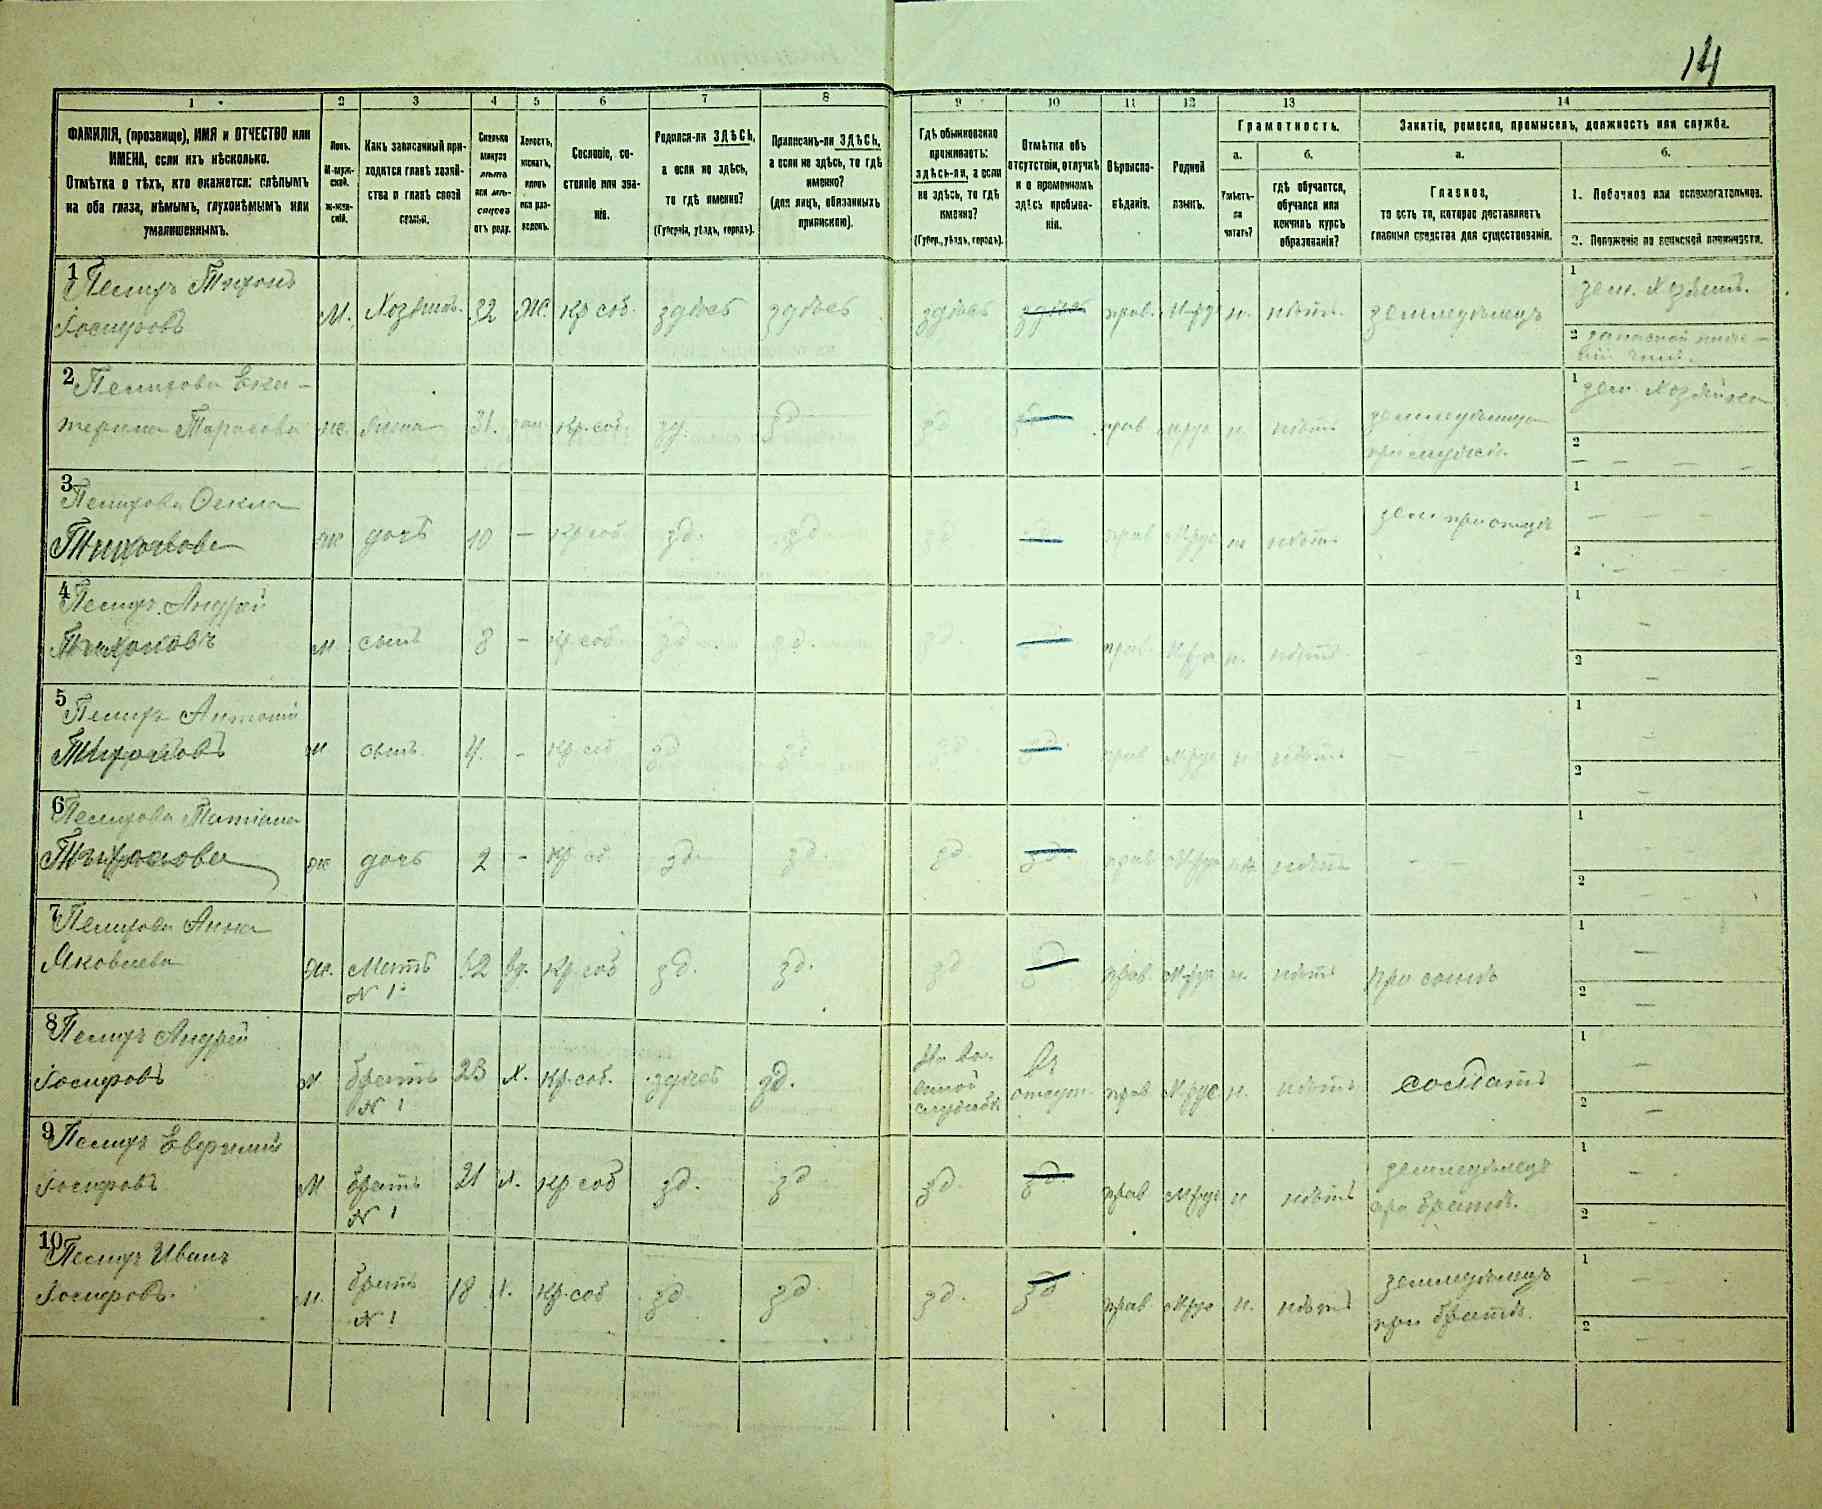 14
1 2 3 4 5 6 7 8 9 10 11 12 13 14
ФАМИЛІЯ, (прозвище), ИМЯ и ОТЧЕСТВО или
ИМЕНА, если ихъ нѣсколько.
Отмѣтка о тѣхъ, кто окажется: слѣпымъ
на оба глаза, нѣмымъ, глухонѣмымъ или
умалишеннымъ.
Полъ.
М-муж-
ской.
Ж-жен-
скій.
Какъ записанный при-
ходится главѣ хозяй-
ства и главѣ своей
семьи.
Сколько
минуло
лѣтъ
или мѣ-
сяцевъ
отъ роду.
Холостъ,
женатъ,
вдовъ
или раз-
веденъ.
Сословіе, со-
стояніе или зва-
ніе.
Родился-ли ЗДѢСЬ,
а если не здѣсь,
то гдѣ именно?
(Губернія, уѣздъ, городъ).
Приписанъ-ли ЗДѢСЬ,
а если не здѣсь, то гдѣ
именно?
(для лицъ, обязанныхъ
припискою).
Гдѣ обыкновенно
проживаетъ:
здѣсь-ли, а если
не здѣсь, то гдѣ
именно?
(Губер., уѣздъ, городъ).
Отмѣтка объ
отсутствіи, отлучкѣ
и о временномъ
здѣсь пребыва-
ніи.
Вѣроиспо-
вѣданіе.
Родной
языкъ.
Грамотность.
а.
Умѣетъ-
ли
читать?
б.
гдѣ обучается,
обучался или
кончилъ курсъ
образованія?
Занятіе, ремесло, промыселъ, должность или служба.
а.
Главное,
то есть то, которое доставляетъ
главныя средства для существованія.
б.
1. Побочное или вспомогательное.
2. Положеніе по воинской повинности.
1 Тихонъ
М. Хозяинъ. 32 Ж. кр соб. здѣсь здѣсь здѣсь здѣсь прав. М-рус н. нѣтъ. земледѣлецъ
1 зем. Хозяинъ.
2
2 Ека-
терина Тарасова ж. жена 31. зам кр. соб. зд. зд зд прав М.рус н. нѣтъ
1 зем. Хозяйка
2 – – – –
3 Ѳекла
Тихонова ж дочь 10 – кр соб зд. зд. зд зд прав М.рус н нѣтъ. зем при отцѣ
1 – – – –
2 – – –
4 Андрей
Тихоновъ м. сынъ 8 – кр. соб. зд. зд. зд. прав. М.рус н. нѣтъ. –
1 –
2 –
5 Антоній
Тихоновъ м сынъ. 4. – кр. соб зд зд зд. зд. прав М.рус н нѣтъ –
1 –
2 –
6 Татіана
Тихонова ж дочь 2 – кр. соб зд. зд зд. зд. прав М.рус н. нѣтъ – –
1 – –
2 – –
7 Анна
Яковлева ж. Мать 62 вд. кр. соб зд. зд. зд прав. М-рус н. нѣтъ при сынѣ
N 1
1 –
2 –
8 Андрей
Іосифовъ м братъ 23 х. кр. соб. здѣсь зд. На во-
енной
службѣ
въ
отсут. прав М.рус н. нѣтъ солдатъ
N 1
1 –
2 –
9 Евфимій
Іосифовъ м братъ 21 х. кр соб зд. зд зд. зд. прав М.рус н нѣтъ земледѣлецъ
N 1
при братѣ.
1 – –
2 –
10 Иванъ
Іосифовъ. м. братъ 18 х. кр. соб зд. зд. зд. зд прав. М.рус н. нѣтъ земледѣлецъ
N 1
при братѣ.
1 –
2 –